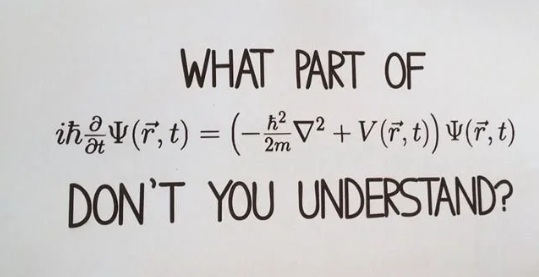 WHAT PART OF
iħ ∂/∂t Ψ(r⃗, t) = (−ħ²/2m ∇² + V(r⃗, t)) Ψ(r⃗, t)
DON'T YOU UNDERSTAND?